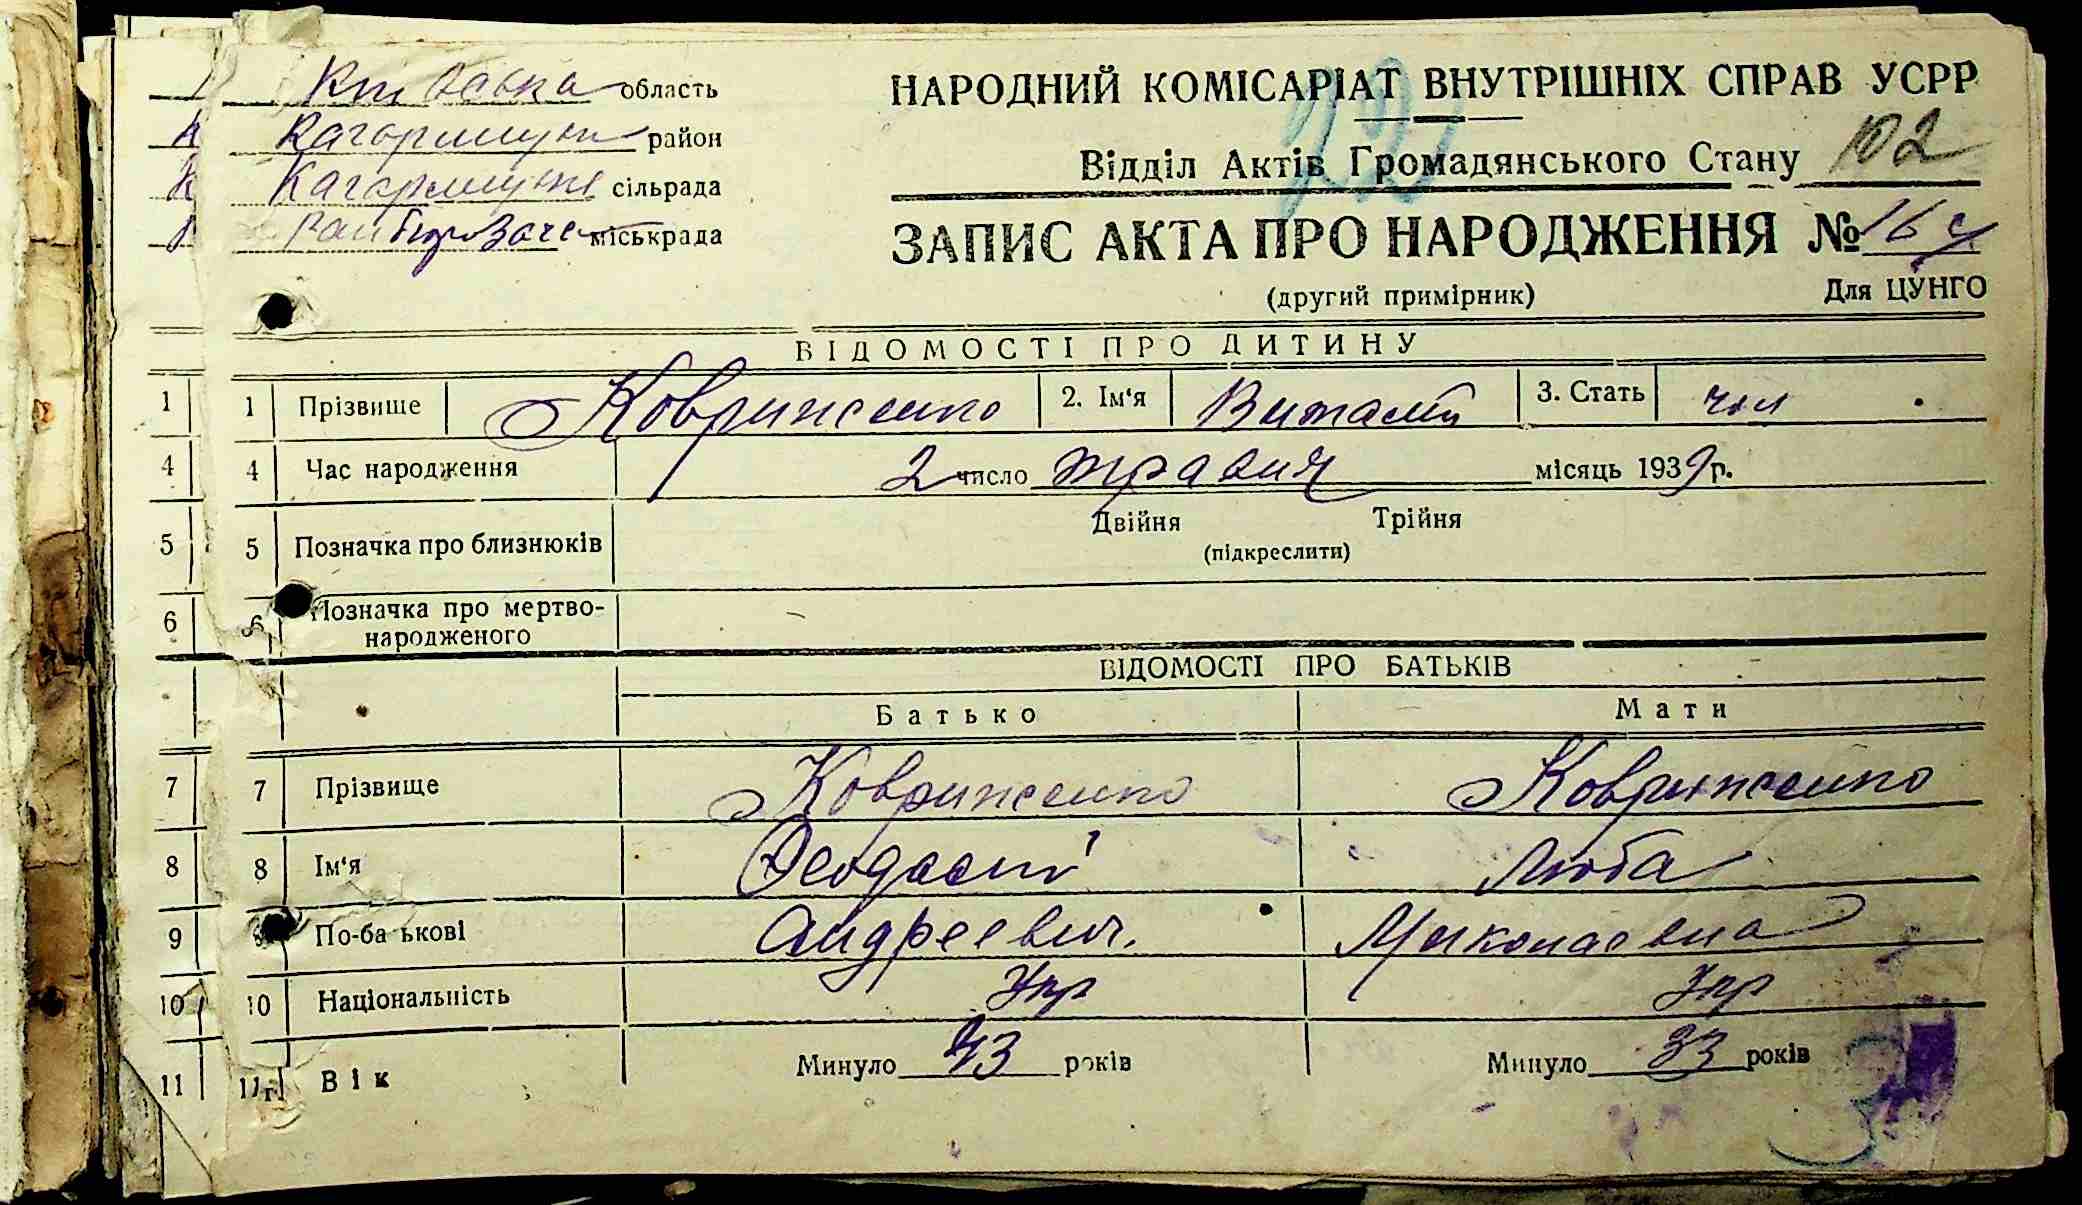 Київська область
Кагарлицьк район
Кагарлицьк сільрада
Райбюро Загс міськрада
НАРОДНИЙ КОМІСАРІАТ ВНУТРІШНІХ СПРАВ УСРР
Відділ Актів Громадянського Стану 102
ЗАПИС АКТА ПРО НАРОДЖЕННЯ №
(другий примірник) Для ЦУНГО
ВІДОМОСТІ ПРО ДИТИНУ
1 1 Прізвище Ковриженко 2. Ім‘я Виталій 3. Стать чол
4 4 Час народження 2 число травня місяць 1939 р.
5 5 Позначка про близнюків Двійня Трійня
(підкреслити)
6 6 Позначка про мертво-
народженого
ВІДОМОСТІ ПРО БАТЬКІВ
Батько Мати
7 7 Прізвище Ковриженко Ковриженко
8 8 Ім‘я Феодосій Люба
9 9 По-ба ькові Андреевич. Миколаевна
10 10 Національність Укр Укр
11 11 Вік Минуло 43 років Минуло 33 років